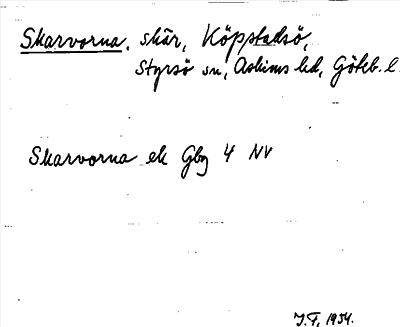 Skarvorna, skär, Köpstadsö,
Styrsö sn, Askims hd, Göteb. l.
Skarvorna ek Gbg 4 NV
J.F, 1934.